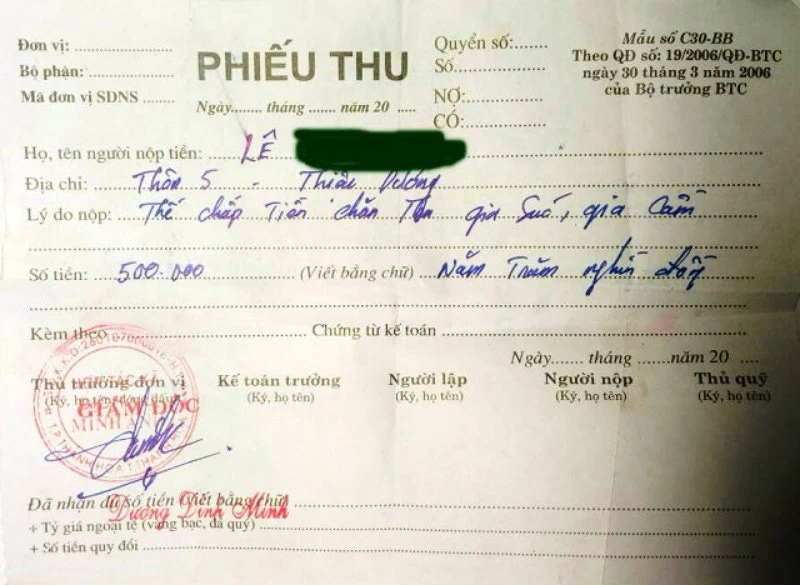 Đơn vị:
Bộ phận:
Mã đơn vị SDNS
PHIẾU THU
Ngày........ tháng ....... năm 20 .....
Quyển số:
Số
NỢ:
CÓ:
Mẫu số C30-BB
Theo QĐ số: 19/2006/QĐ-BTC
ngày 30 tháng 3 năm 2006
của Bộ trưởng BTC
Họ, tên người nộp tiền: LÊ
Địa chỉ: Thôn 5 - Thiệu Dương
Lý do nộp: Thế chấp Tiền chăn gia Súc, gia Cầm
Số tiền: 500.000 (Viết bằng chữ) Năm Trăm nghìn đồng
Kèm theo Chứng từ kế toán
Ngày....... tháng .........năm 20
Thủ trưởng đơn vị Kế toán trưởng Người lập Người nộp Thủ quỹ
(Ký, họ tên, đóng dấu) (Ký, họ tên) (Ký, họ tên) (Ký, họ tên) (Ký, họ tên)
GIÁM ĐỐC
MINH ANH
T.P THANH HOÁ
Đã nhận đủ số tiền (Viết bằng chữ)
Dương Đình Minh
+ Tỷ giá ngoại tệ (vàng bạc, đá quý)
+ Số tiền quy đổi